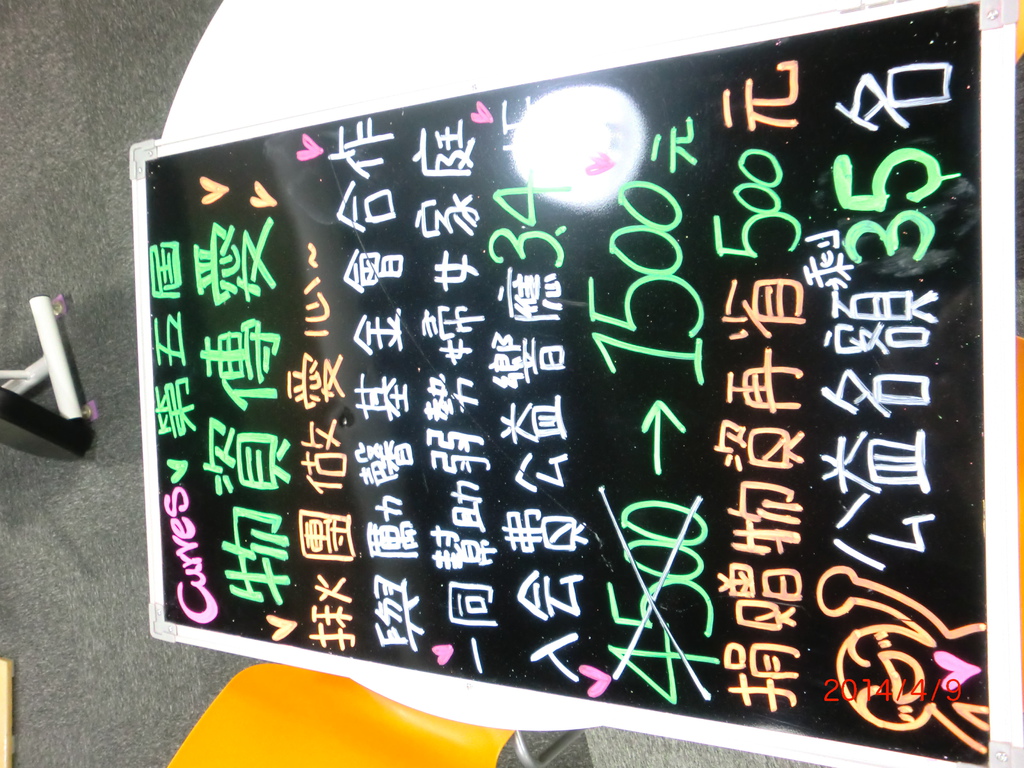 Curves 第五屆
物資傳愛
揪團做愛心~
與勵馨基金會合作
一同幫助弱勢婦女家庭
入会費公益響應34折
4500→1500元
捐贈物資再省500元
公益名額剩35名
2014/4/9